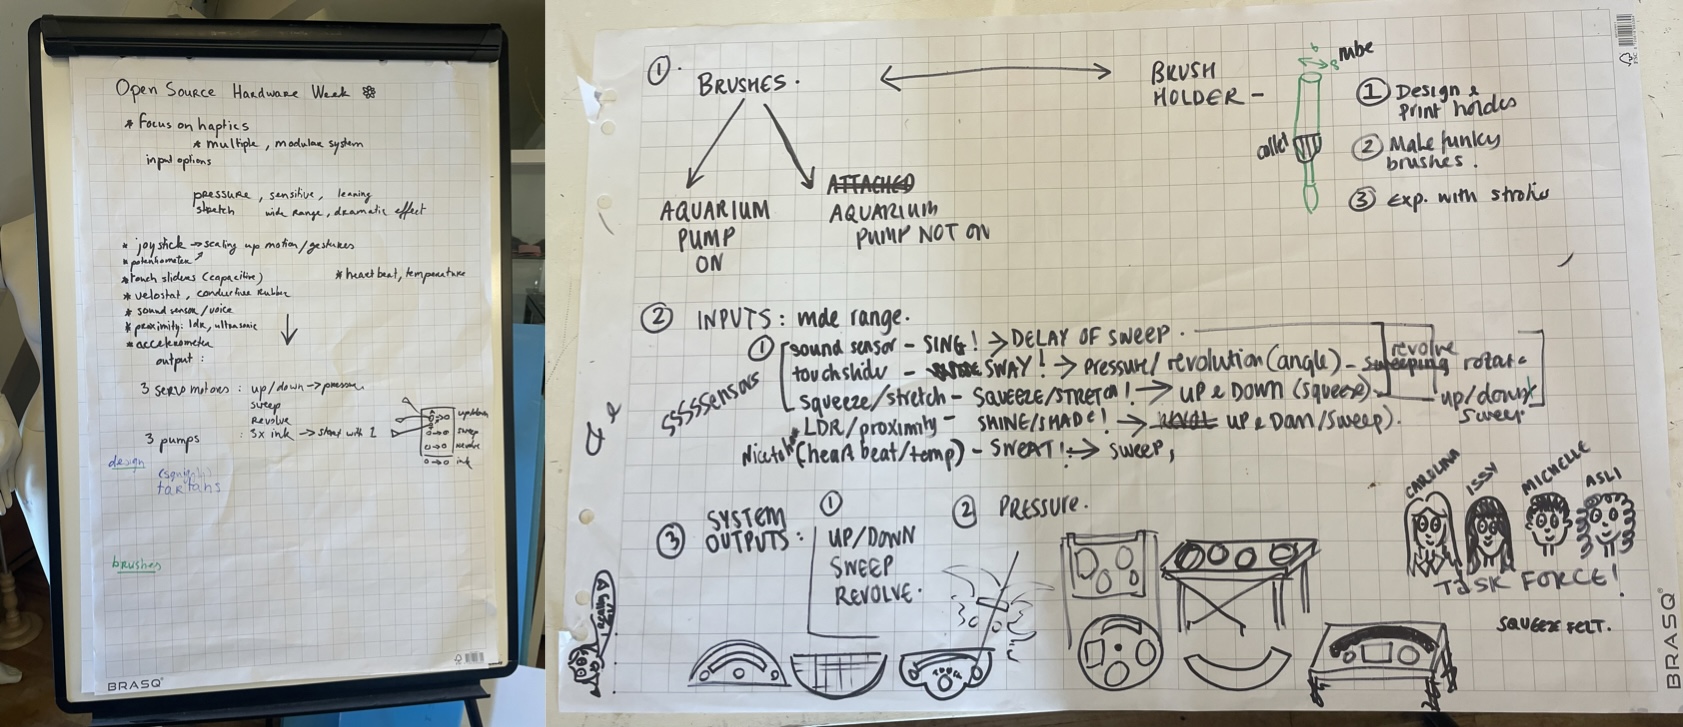 Open Source Hardware Week
* Focus on haptics
* multiple, modular system
input options
pressure, sensitive, leaning
stretch wide range, dramatic effect
* joystick → scaling up motion/gestures
* potentiometer
* touch sliders (capacitive)
* heart beat, temperature
* velostat, conductive rubber
* sound sensor/voice
* proximity: ldr, ultrasonic
* accelerometer
output:
3 servo motors: up/down → pressure
sweep
revolve
3 pumps : 3x ink → start with 1
up/down
sweep
revolve
ink
design
(squiggly)
tartans
brushes
BRASQ
① BRUSHES.
AQUARIUM
PUMP
ON
ATTACHED
AQUARIUM
PUMP NOT ON
BRUSH
HOLDER -
collet
① Design &
Print holder
② Make funky
brushes.
③ Exp. with strokes
② INPUTS: wide range.
① sound sensor - SING! → DELAY OF SWEEP.
touchslider - SWAY! → pressure/revolution (angle) - sweeping
squeeze/stretch - SQUEEZE/STRETCH! → UP & DOWN (squeeze)
LDR/proximity - SHINE/SHADE! → UP & Down/Sweep).
Nice to have (heart beat/temp) - SWEAT! → sweep,
SSSSSensors
revolve
rotate
up/down
sweep
③ SYSTEM
OUTPUTS:
①
UP/DOWN
SWEEP
REVOLVE.
② PRESSURE.
CAROLINA
ISSY
MICHELLE
ASLI
TASK FORCE!
SQUEEZE FELT.
BRASQ